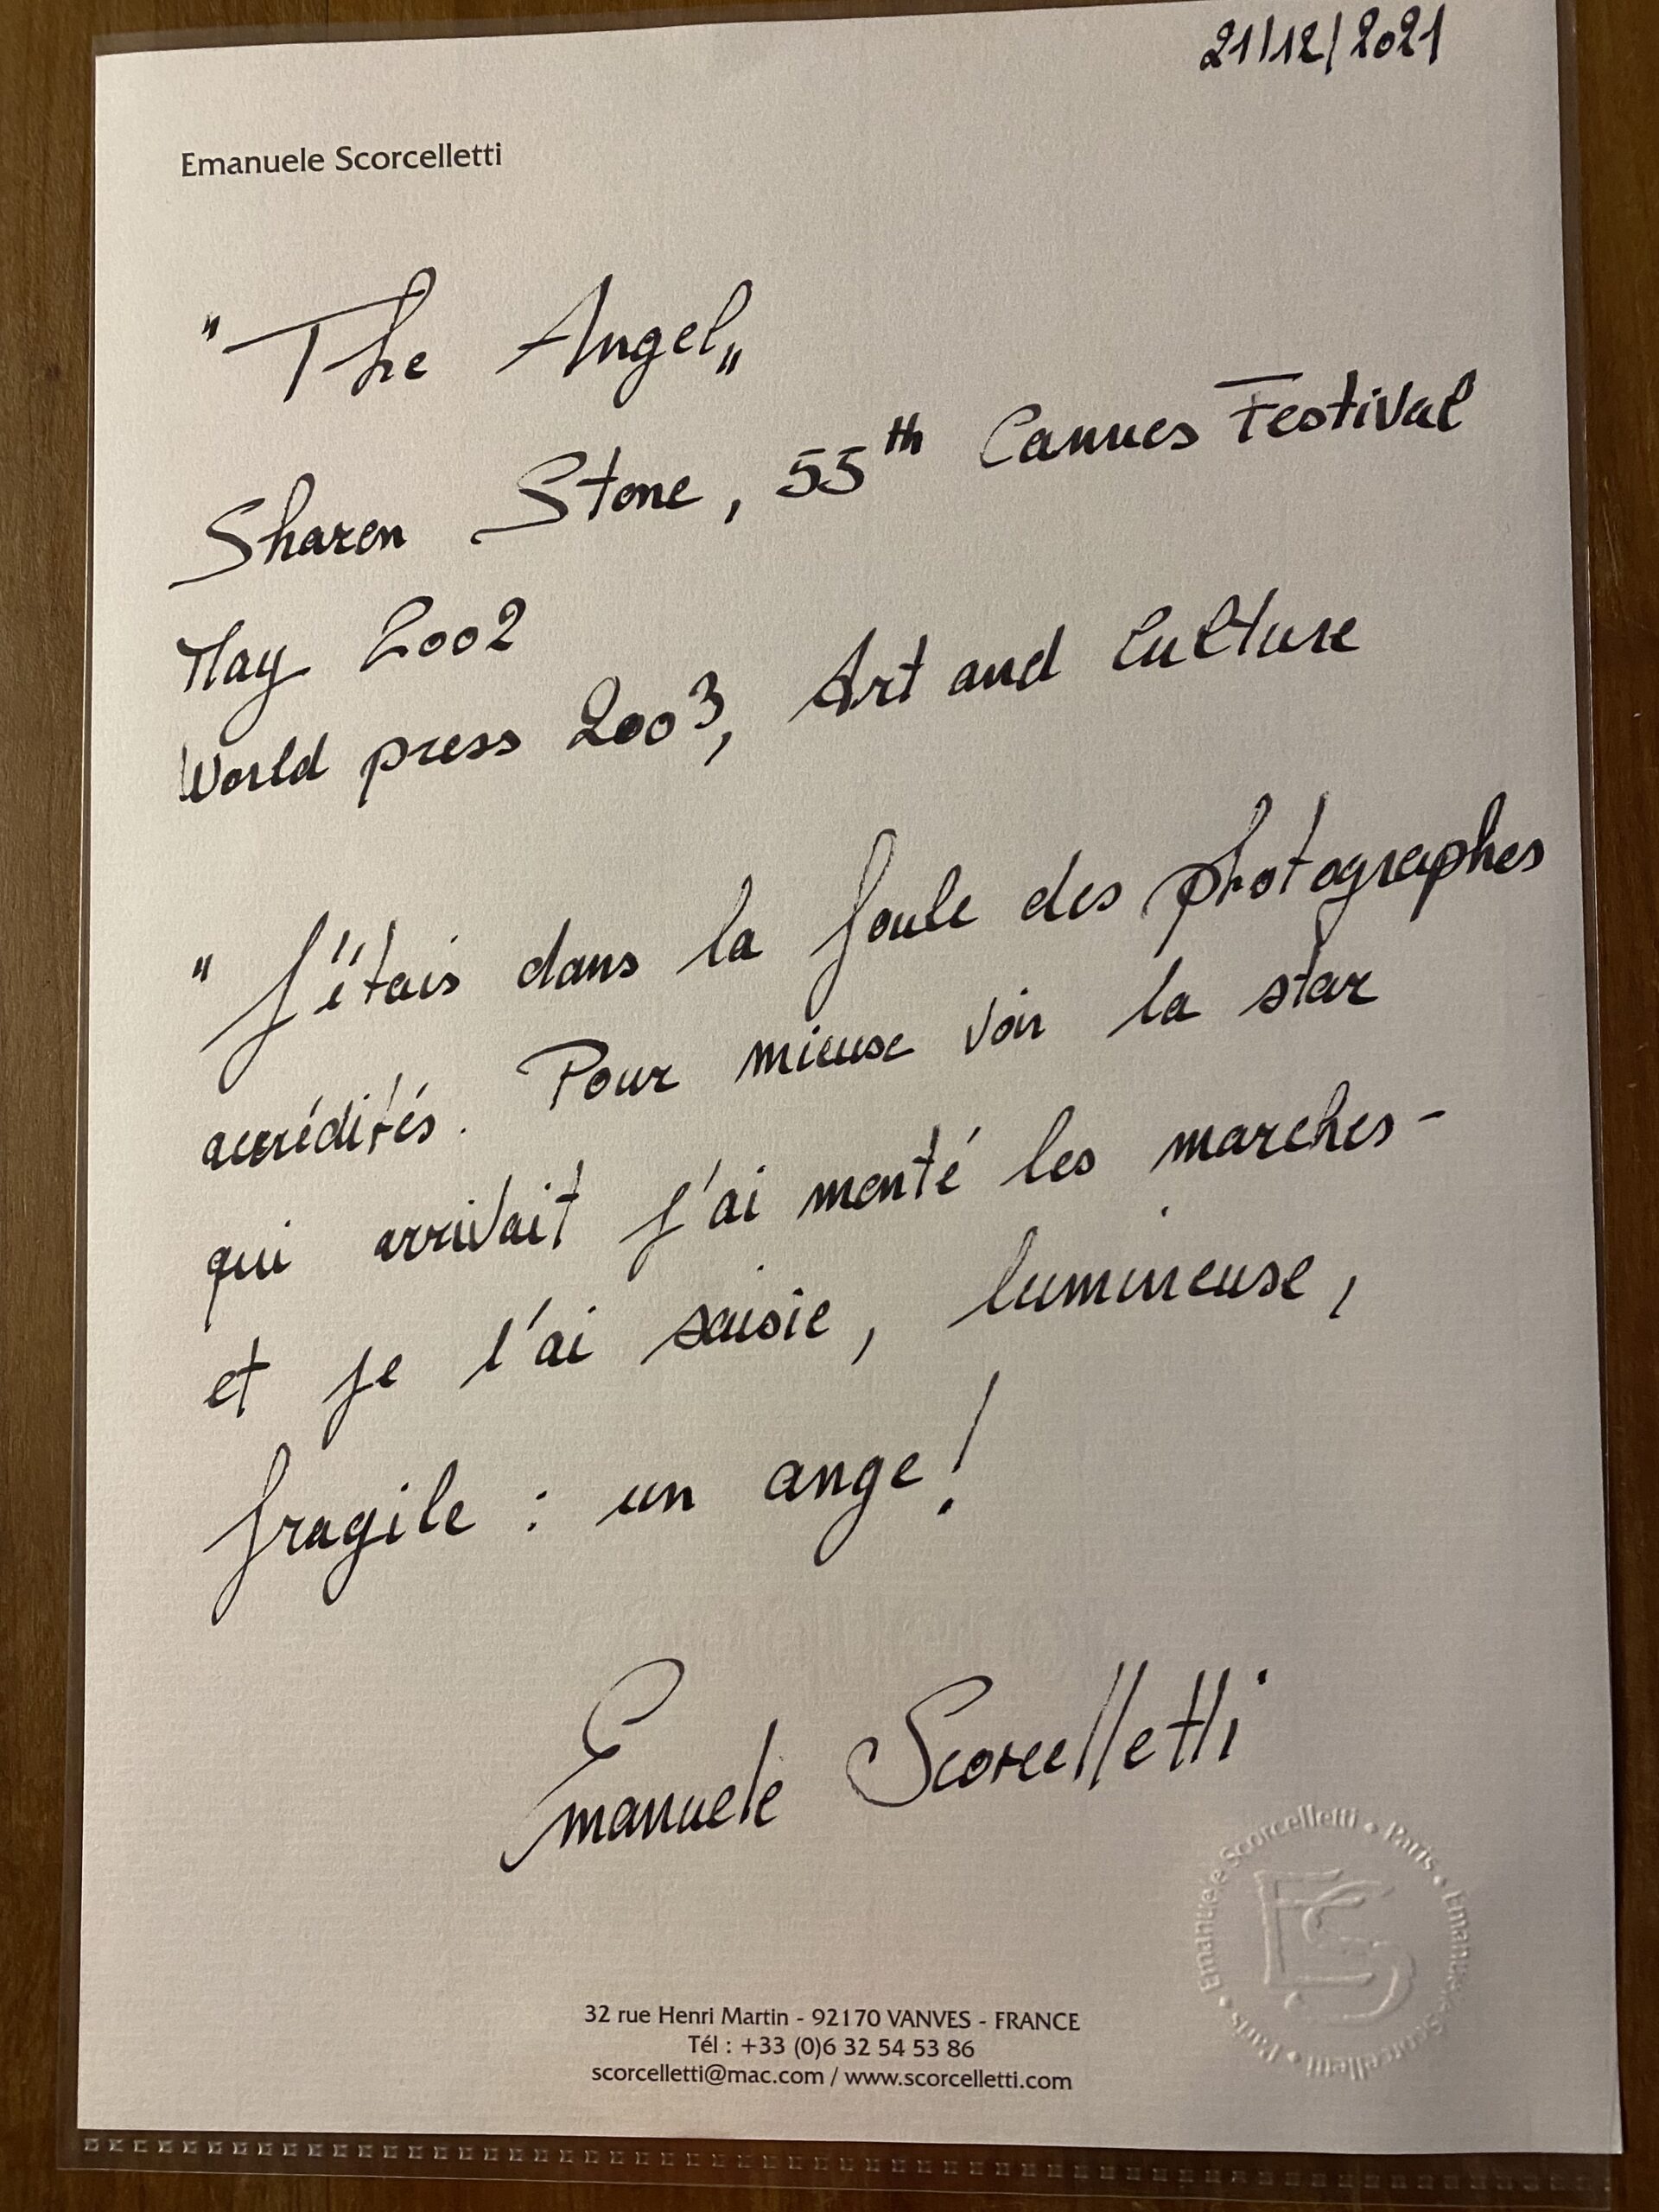 21/12/2021
Emanuele Scorcelletti
"The Angel"
Sharon Stone, 55th Cannes Festival
May 2002
World press 2003, Art and Culture
" J'étais dans la foule des photographes
accrédités. Pour mieux voir la star
qui arrivait j'ai monté les marches -
et je l'ai saisie, lumineuse,
fragile : un ange !
Emanuele Scorcelletti
Emanuele Scorcelletti • Paris • Emanuele Scorcelletti • Paris •
ES
32 rue Henri Martin - 92170 VANVES - FRANCE
Tél : +33 (0)6 32 54 53 86
scorcelletti@mac.com / www.scorcelletti.com